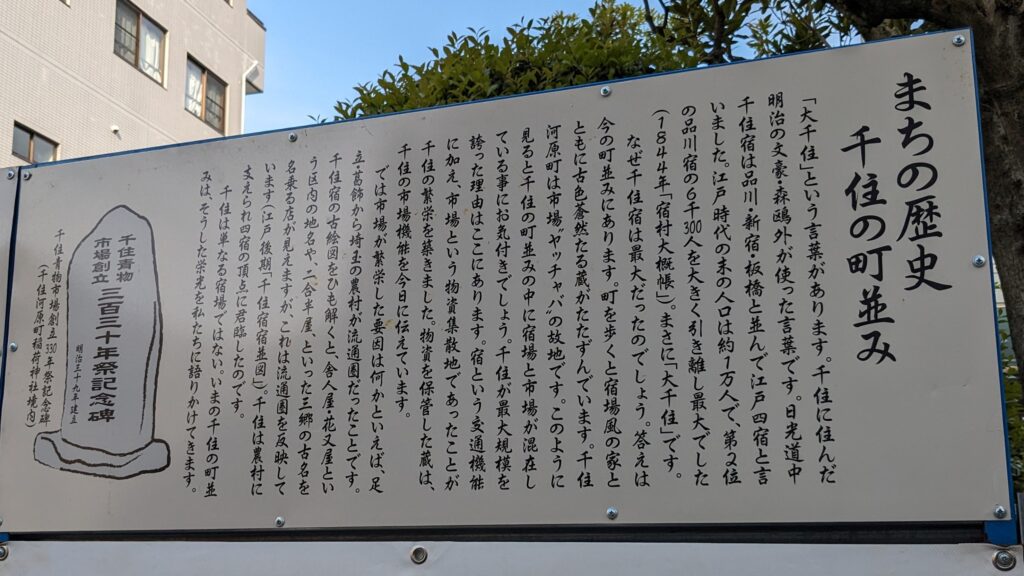 まちの歴史
千住の町並み
「大千住」という言葉があります。千住に住んだ
明治の文豪・森鴎外が使った言葉です。日光道中
千住宿は品川・新宿・板橋と並んで江戸四宿と言
いました。江戸時代の末の人口は約1万人で、第2位
の品川宿の6千300人を大きく引き離し最大でした
(1844年「宿村大概帳」)。まさに「大千住」です。
なぜ千住宿は最大だったのでしょう。答えは
今の町並みにあります。町を歩くと宿場風の家と
ともに古色蒼然たる蔵がたたずんでいます。千住
河原町は市場"ヤッチャバ"の故地です。このように
見ると千住の町並みの中に宿場と市場が混在し
ている事にお気付きでしょう。千住が最大規模を
誇った理由はここにあります。宿という交通機能
に加え、市場という物資集散地であったことが
千住の繁栄を築きました。物資を保管した蔵は、
千住の市場機能を今日に伝えています。
では市場が繁栄した要因は何かといえば、足
立・葛飾から埼玉の農村が流通圏だったことです。
千住宿の古絵図をひも解くと、舎人屋・花又屋とい
う区内の地名や、二合半屋、といった三郷の古名を
名乗る店が見えますが、これは流通圏を反映して
います(江戸後期「千住宿宿並図」)。千住は農村に
支えられ四宿の頂点に君臨したのです。
千住は単なる宿場ではない、いまの千住の町並
みは、そうした栄光を私たちに語りかけてきます。
千住青物
市場創立
三百三十年祭記念碑
明治三十九年建立
千住青物市場創立330年祭記念碑
(千住河原町稲荷神社境内)